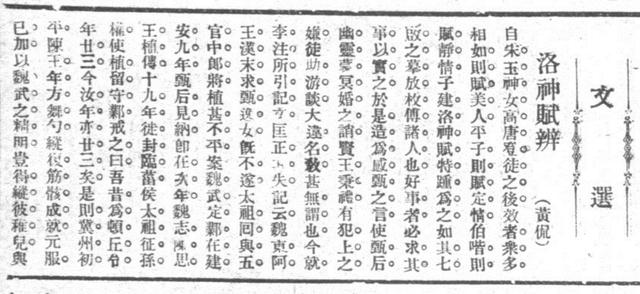 文選
洛神賦辨
(黃侃)
自宋玉神女高唐登徒之後效者衆多
相如則賦美人平子則賦定情伯喈則
賦靜情子建洛神賦特踵爲之如其七
啟之摹放枚傅諸人也好事者必求其
事以實之於是造爲感甄之言使甄后
幽靈蒙冥婚之誚賢王秉禮有犯上之
嫌徒助游談大違名敎甚無謂也今就
李注所引記文匡正其失記云魏東阿
王漢末求甄逸女旣不遂太祖回與五
官中郎將植甚不平案魏武定鄴在建
安九年甄后見納卽在年魏志陳思
王植傳十九年徙封臨菑侯太祖征孫
權使植留守鄴戒之曰吾昔爲頓丘令
年廿三今汝年亦廿三矣是則冀州初
平陳王年方舞勺縱使筋骸成就元服
已加以魏武之精明豈得縱彼稚兒與